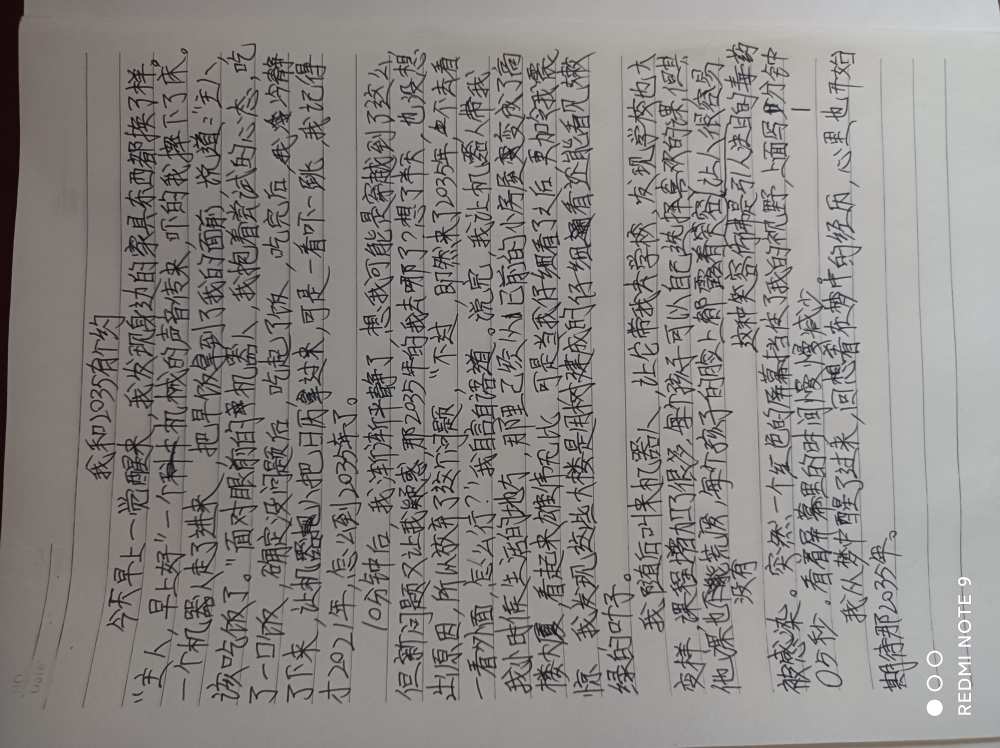 我和2035有个约
今天早上一觉醒来，我发现身边的家具东西都换了样。
“主人，早上好”一个机械的声音传来，吓的我摔下了床。
一个机器人走了进来，把早饭拿到了我的面前，说道：“主人
该吃饭了。”面对眼前的机器人，我抱着尝试的心态，吃
了一口饭，确定没问题后，吃起了饭，吃完后，我冷静
了下来，让机器人把日历拿过来，可是一看吓一跳，我记得
才2021年，怎么到2035年了。
10分钟后，我渐渐平静了，想我可能是穿越到了这么
但新问题又让我疑惑，那2035年的我去哪了？想了半天，也没想
出原因，所以放弃了这个问题，“不过，既然来了2035年，不去看
一看外面，怎么行？”我自言自语道。说完，我让机器人带我
我小时候生活的地方，那里已经从以前的小房屋变成了高
楼大厦，看起来雄伟无比，可是当我仔细看了之后更加令我震
惊，我发现这些大楼是用树建成的仔细看还能看见嫩
绿的叶子。
我随后叫来机器人，让它带我去学校，发现学校也大
变样，课程增加了很多，每个孩子可以自己选择喜欢的课，但其
他课也没有荒废，每个孩子的脸上都露着笑容，这种笑容让人很容易
被感染。突然一个红色的屏幕挡住了我的视野，上面写着1分钟
05秒。看着屏幕里的时间慢慢减少。
我从梦中醒了过来，回想着在梦中的经历，心里也开始
期待那2035年。
REDMI NOTE 9